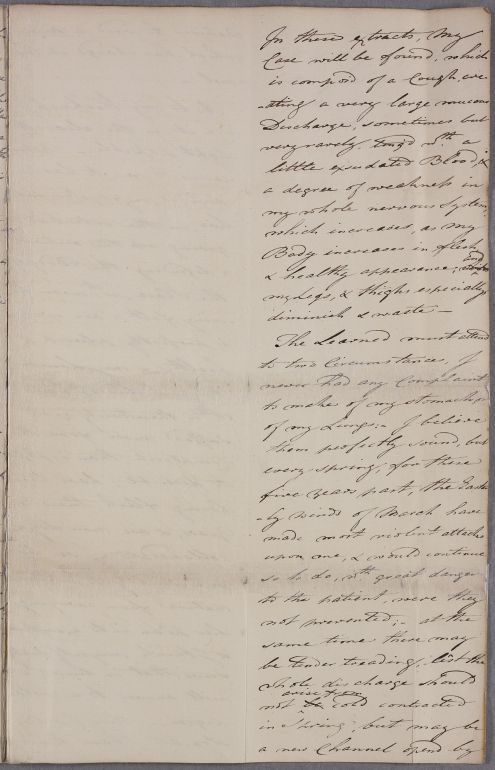 In these extracts, My
Case will be found, which
is composd of a Cough, cre-
-ating a very large mucous
Discharge, sometimes but
very rarely tingd wth a
little exsudated Blood, &
a degree of weakness in
my whole nervous System,
which increases, as my
Body increases in flesh
& healthy appearance, and
my Legs, & thighs especially
diminish & waste —
The Learned must attend
to two Circumstances, I
never had any Complaint
to make of my stomach or
of my Lungs. I believe
them perfectly sound, but
every spring, for these
five years past, the Easter-
-ly winds of March have
made most violent attacks
upon me, & would continue
so to do, wth great danger
to the patient, were they
not prevented; at the
same time there may
be tender treading, lest the
whole discharge should
not arise from cold contracted
in Spring, but may be
a new Channel opend by